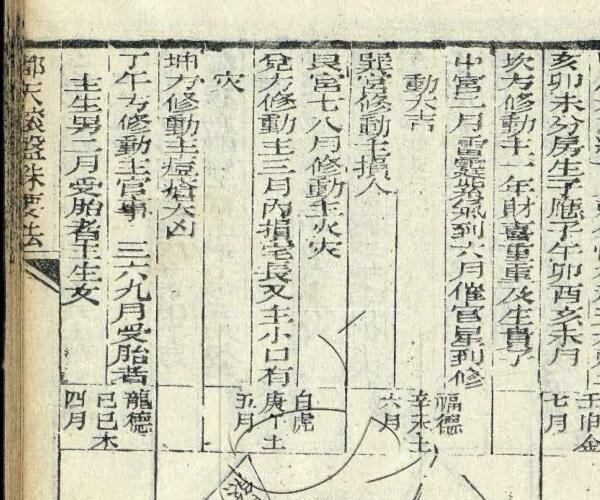 亥卯未分房生子應子午卯酉亥未月
坎方修動主一年財喜重重及生貴子
中宮二月雷霆紫氣到六月催官星到修
動大吉
巽宮修動主損人
艮宮七八月修動主火灾
兌方修動主三月內損宅長又主小口有
灾
坤方修動主痘瘡大凶
丁午方修動主官事 三六九月受胎者
主生男二月受胎者主生女
壬申金
七月
福德
辛未土
六月
白虎
庚午土
五月
龍德
己巳木
四月
都天
要法